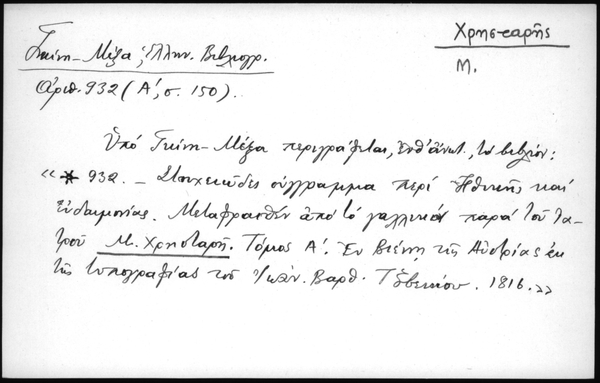 Χρησταρῆς
Μ.
Γκίνη-Μέξα, Ἑλλην. Βιβλιογρ.
Ἀριθ. 932 (Α΄, σ. 150).
Ὑπό Γκίνη-Μέξα περιγράφεται, ἔνθ᾽ ἀνωτ., τό βιβλίον:
"* 932. - Στοιχειῶδες σύγγραμμα περί Ἠθικῆς καί
Εὐδαιμονίας. Μεταφρασθέν ἀπό τό γαλλικόν παρά τοῦ ἰα-
τροῦ Μ. Χρησταρῆ. Τόμος Α΄. Ἐν Βιέννῃ τῆς Αὐστρίας ἐκ
τῆς τυπογραφίας τοῦ Ἰωάν. Βαρθ. Τσβεκίου. 1816.»